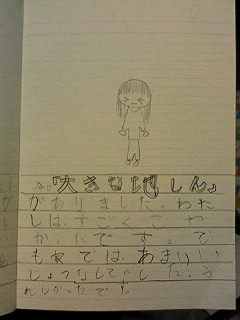 『大きな地しん』
がありました。わた
しは、すごくこわ
かったです。で
も家では、あまりい
じょうなしでした。う
れしかったです。